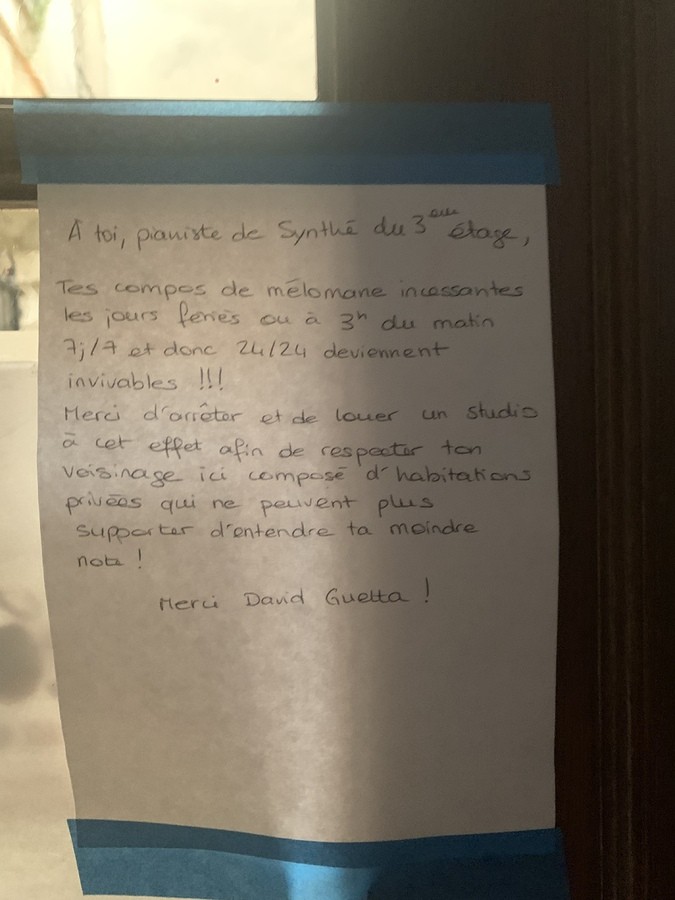 À toi, pianiste de Synthé du 3ème étage,
Tes compos de mélomane incessantes
les jours fériés ou à 3h du matin
7j/7 et donc 24/24 deviennent
invivables !!!
Merci d'arrêter et de louer un studio
à cet effet afin de respecter ton
voisinage ici composé d'habitations
privées qui ne peuvent plus
supporter d'entendre ta moindre
note !
Merci David Guetta !